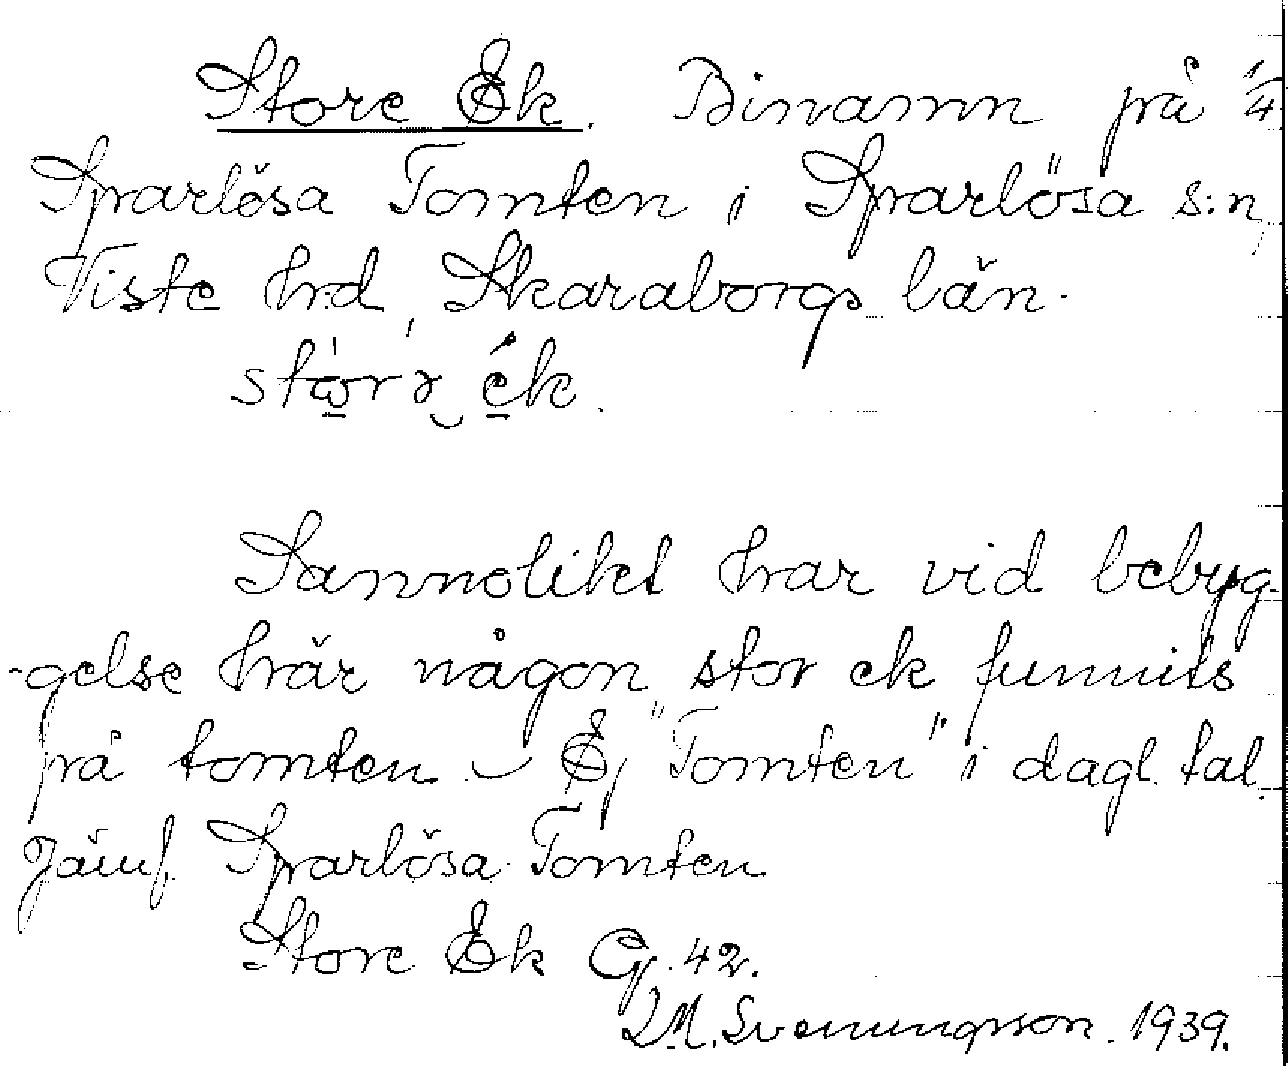 Store Ek. Binamn på 1/4
Sparlösa Tomten i Sparlösa s:n,
Viste hrd, Skaraborgs län.
ék.
Sannolikt har vid bebyg-
-gelse här någon stor ek funnits
på tomten. – Ej "Tomten" i dagl. tal.
Jämf. Sparlösa Tomten
Store Ek G. 42.
Svenungsson. 1939.